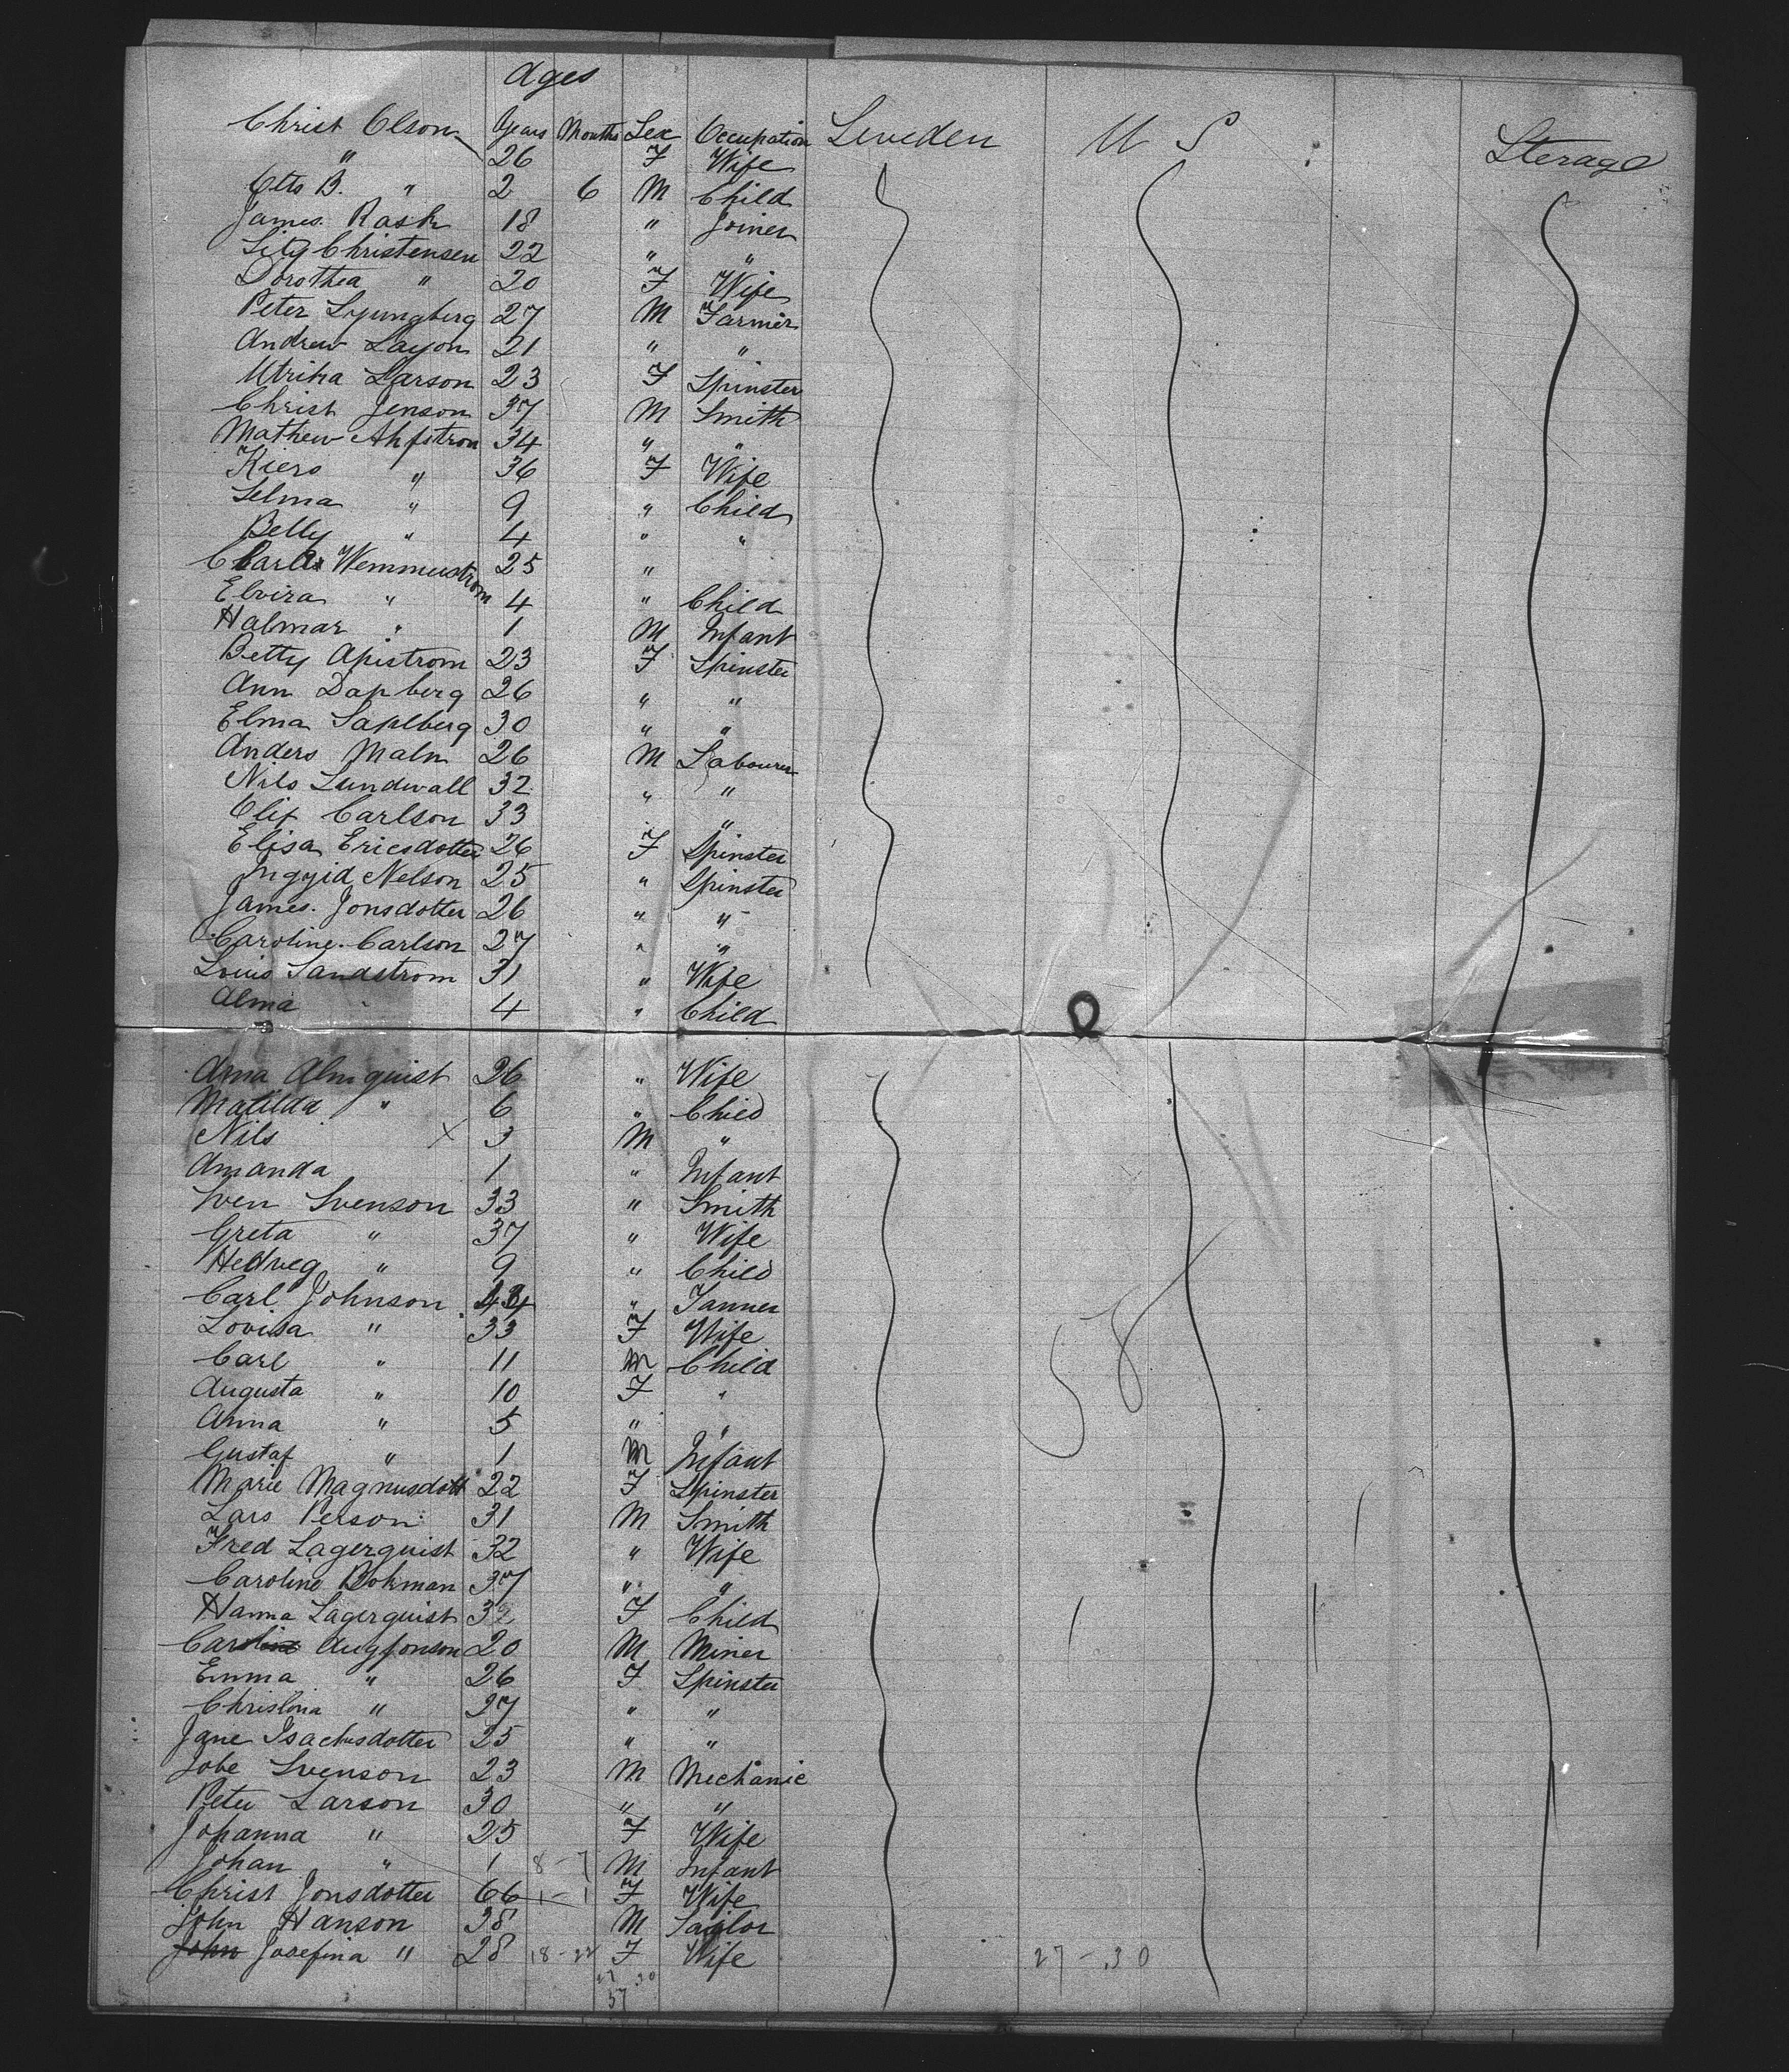 Ages
Christ Olson Years Months Sex Occupation Sweden U S Sterage
" 26 F Wife
Otto B. " 2 6 M Child
James. Rask 18 " Joiner
Christensen 22 " "
Dorothea " 20 F Wife
Peter Lyungberg 27 M Farmer
Andrew Layon 21 " "
Larson 23 F Spinster
Christ Jenson 37 M Smith
Mathew Ahfstrom 34 " "
Kiers " 36 F Wife
Selma " 9 " Child
Betty " 4 " "
Wemmerstrom 25 "
Elvira " 4 " Child
Halmar " 1 M Infant
Betty Apistrom 23 F Spinster
Ann Dapberg 26 " "
Elma Saplberg 30 " "
Anders Malm 26 M Labourer
Nils Lundwall 32 " "
Olif Carlson 33 " "
Elisa Ericsdotter 26 F Spinster
Nelson 25 " Spinster
James. Jonsdotter 26 " "
Caroline. Carlson 27 " "
Louis Sandstrom 31 " Wife
Alma " 4 " Child
Anna Almquist 26 " Wife
Matilda " 6 " Child
Nils X 3 M "
Amanda 1 " Infant
Sven Svenson 33 " Smith
Greta " 37 " Wife
Hedveg " 9 " Child
Carl Johnson " Tanner
Lovisa " 33 F Wife
Carl " 11 M Child
Augusta " 10 F "
Anna " 5 " "
Gustaf " 1 M Infant
Marie Magnusdott 22 F Spinster
Lars Person 31 M Smith
Fred Lagerquist 32 " Wife
Caroline Bokman 37 " "
Hanna Lagerquist F Child
Augfonson 20 M Miner
Emma " 26 F Spinster
Christina " 27 " "
Jane Isachsdotter 25 " "
Jobe Svenson 23 M Mechanic
Peter Larson 30 " "
Johanna " 25 F Wife
Johan " 1 8-7 M Infant
Christ Jonsdotter 66 1-1 F Wife
John Hanson 28 M Tailor
John Josefina " 28 18-22 F Wife 27-30
27 30
57
58